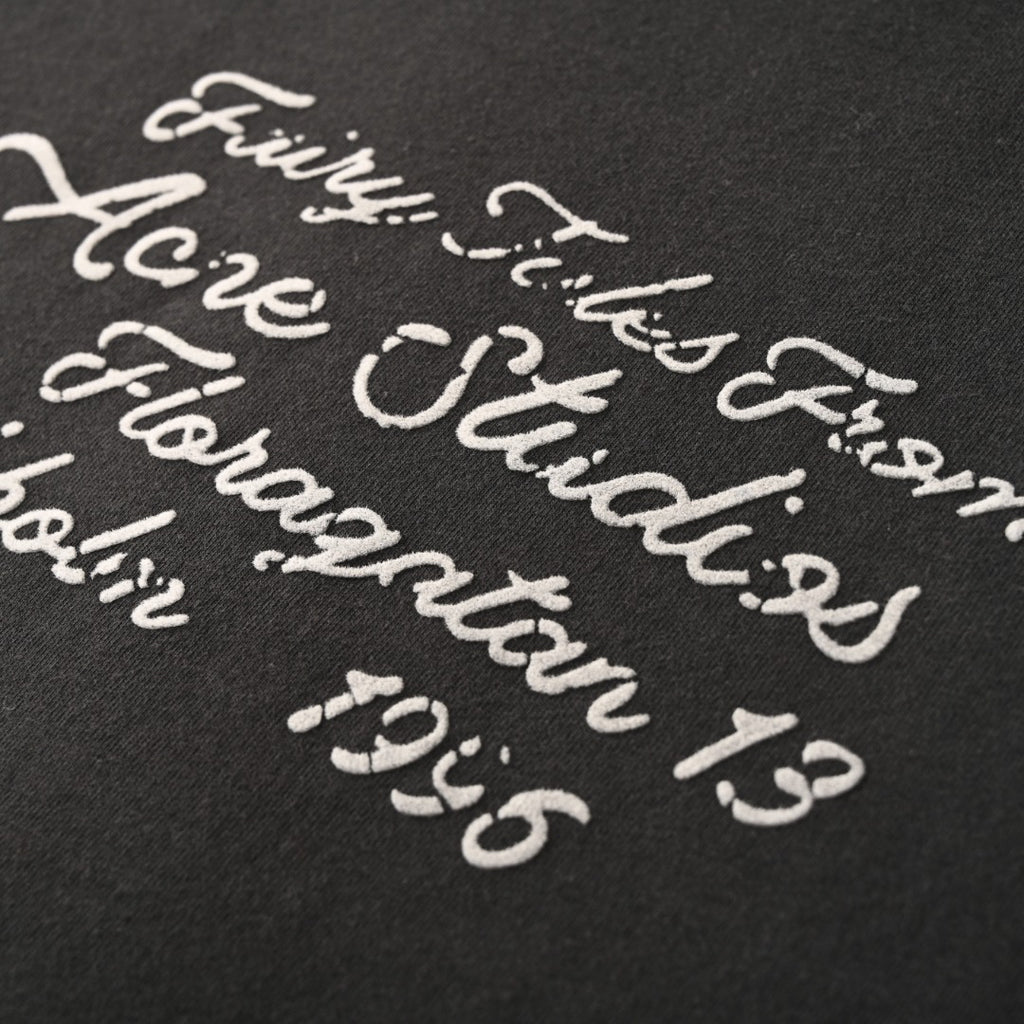 Fairy Tales From
Acne Studios
Floragatan 13
1996